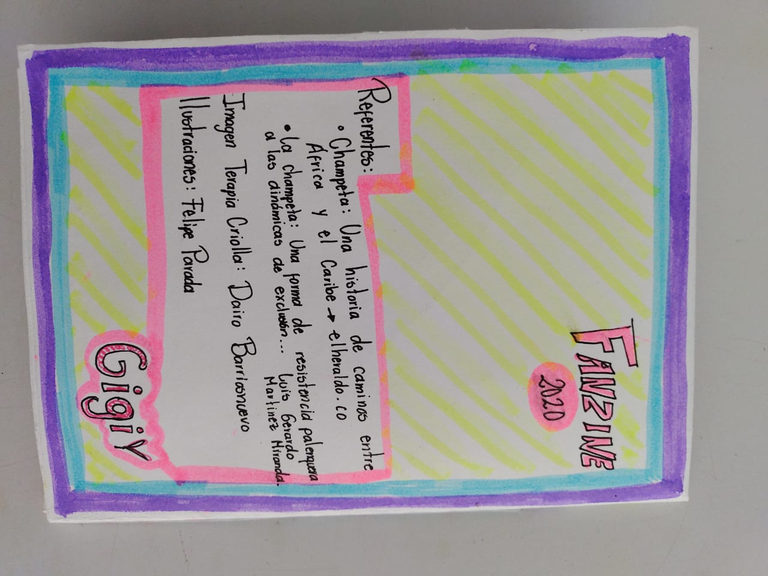 FANZINE
2020
Referentes:
• Champeta: Una historia de caminos entre
África y el Caribe → elheraldo.co
• La champeta: Una forma de resistencia palenquera
a las dinámicas de exclusión... Luis Gerardo
Martínez Miranda.
Imagen Terapia Criolla: Dairo Barriosnuevo
Ilustraciones: Felipe Parada
GigiY